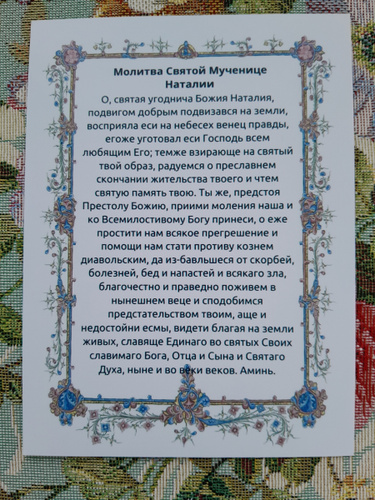 Молитва Святой Мученице
Наталии
О, святая угоднича Божия Наталия,
подвигом добрым подвизався на земли,
восприяла еси на небесех венец правды,
егоже уготовал еси Господь всем
любящим Его; темже взирающе на святый
твой образ, радуемся о преславнем
скончании жительства твоего и чтем
святую память твою. Ты же, предстоя
Престолу Божию, приими моления наша и
ко Всемилостивому Богу принеси, о еже
простити нам всякое прегрешение и
помощи нам стати противу кознем
диавольским, да из-бавльшеся от скорбей,
болезней, бед и напастей и всякаго зла,
благочестно и праведно поживем в
нынешнем веце и сподобимся
предстательством твоим, аще и
недостойни есмы, видети благая на земли
живых, славяще Единаго во святых Своих
славимаго Бога, Отца и Сына и Святаго
Духа, ныне и во веки веков. Аминь.